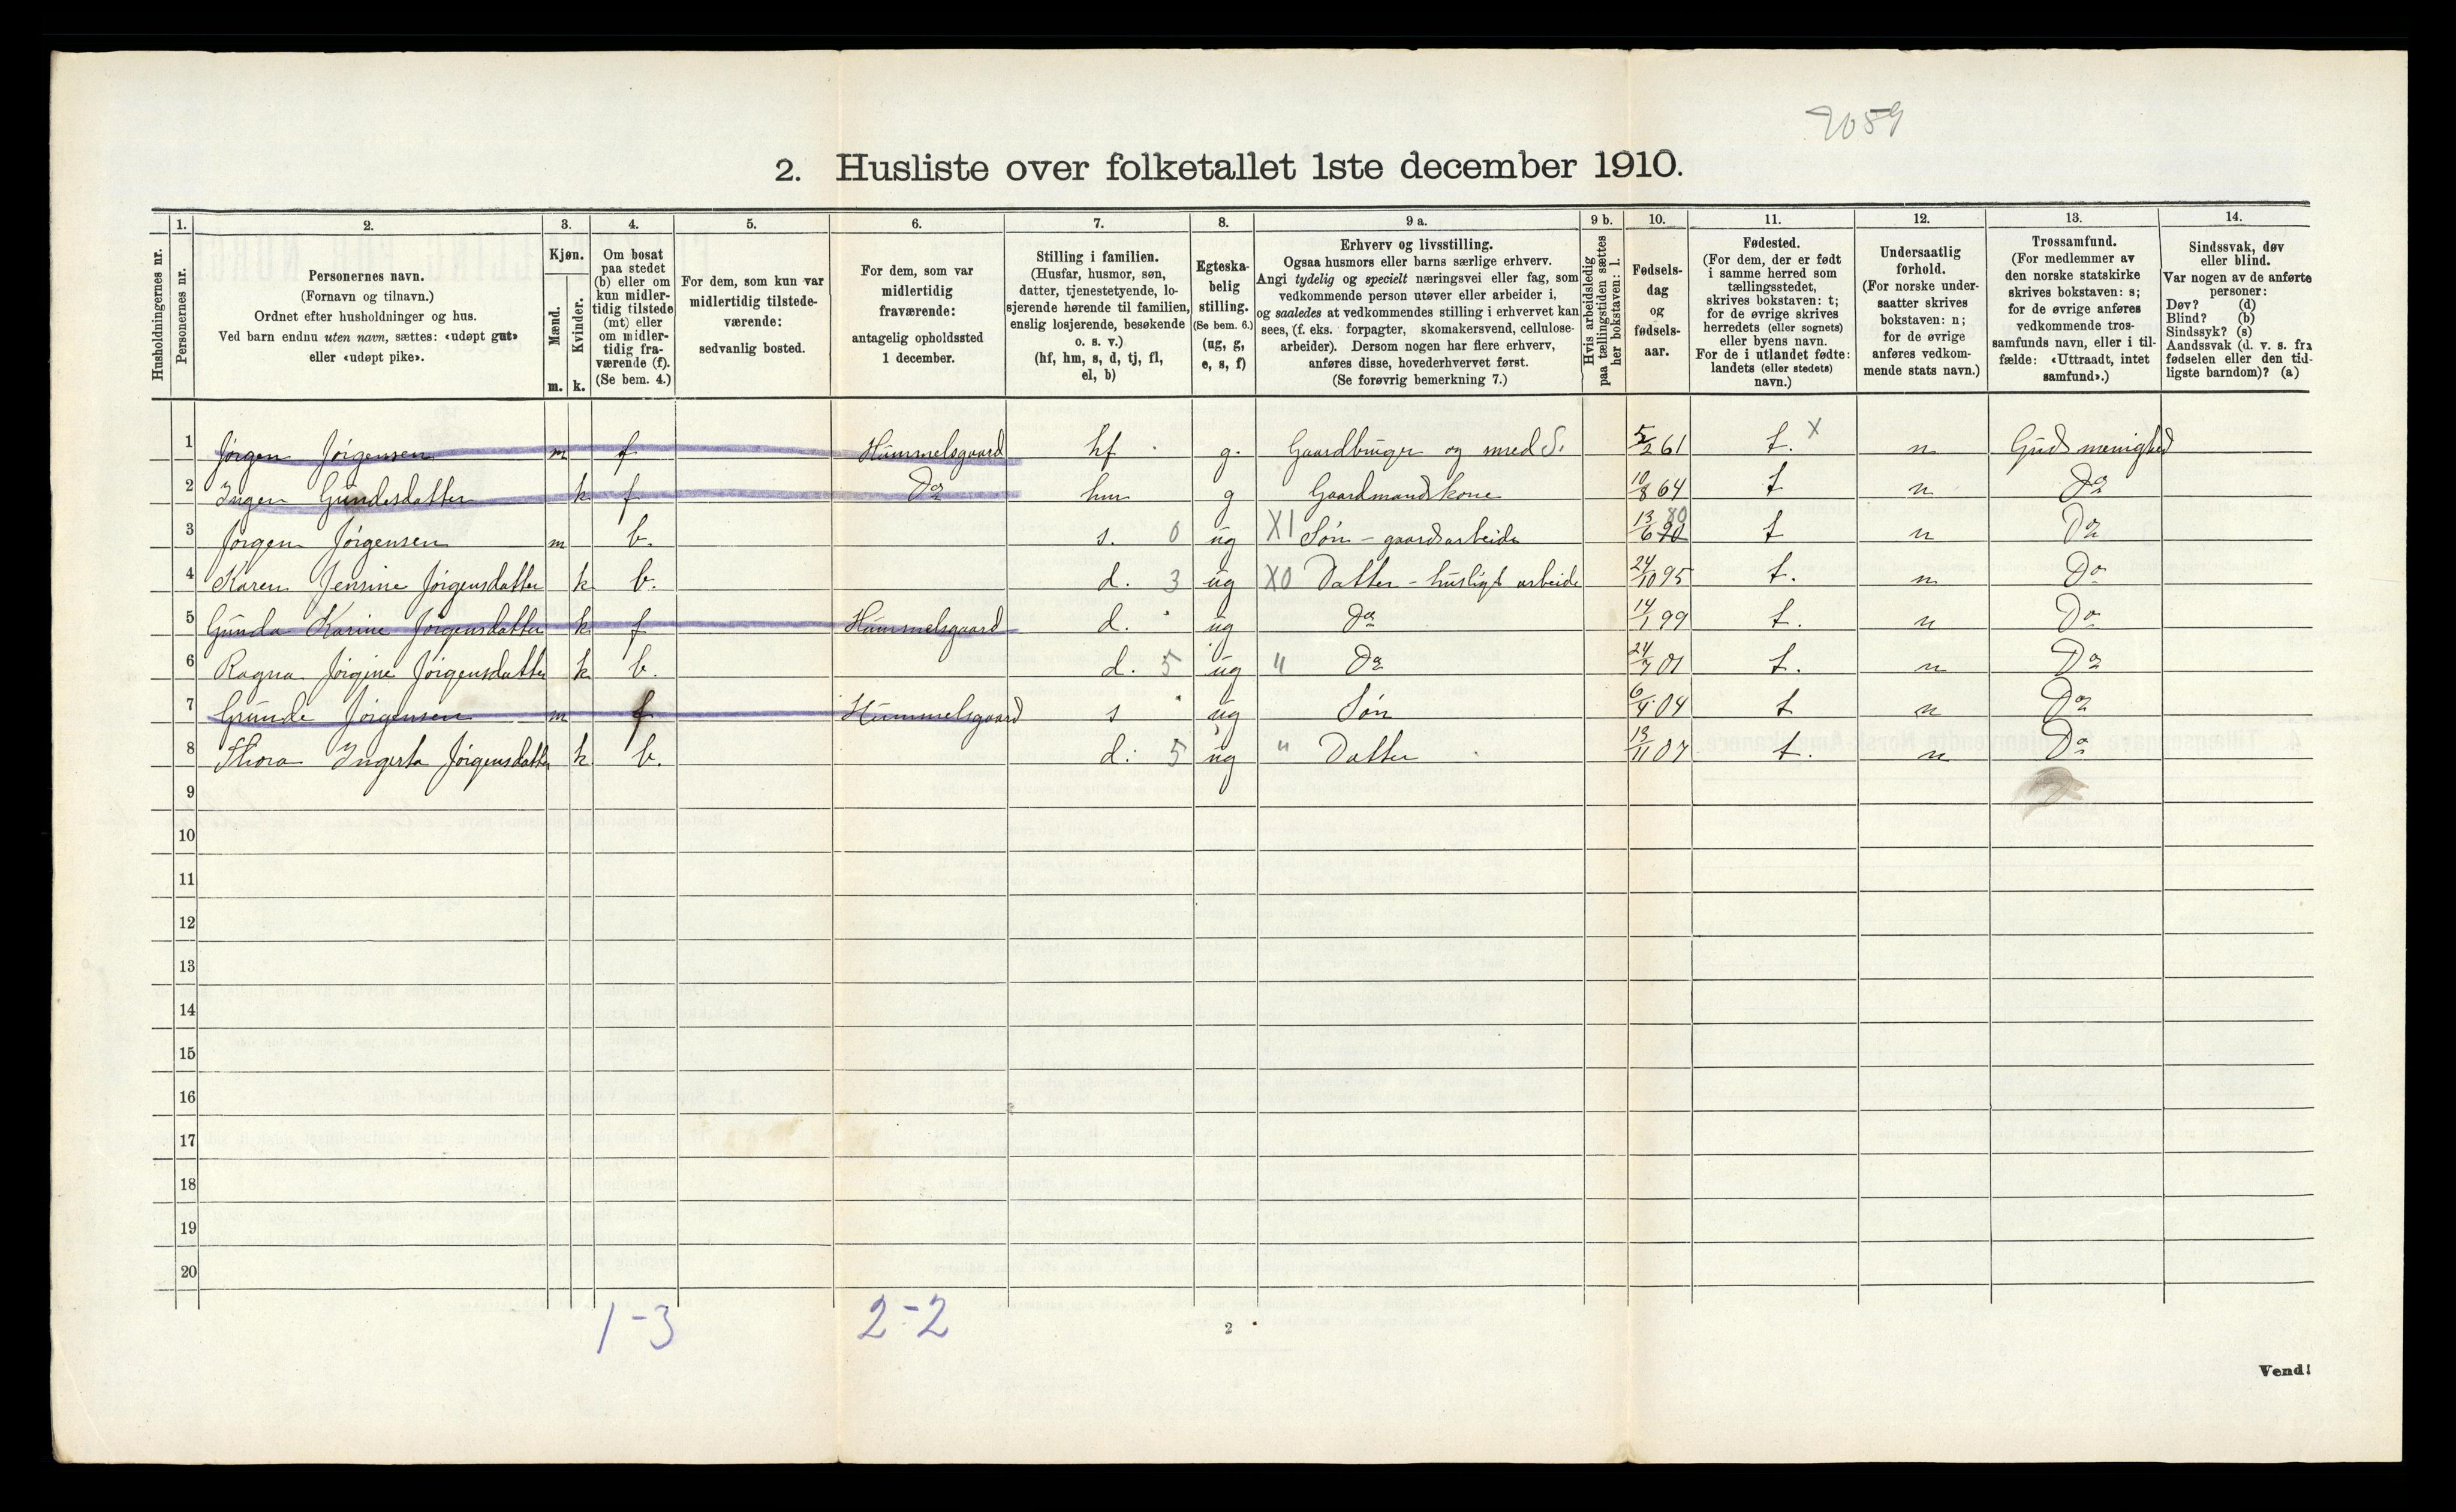 2059
2. Husliste over folketallet 1ste december 1910.
Husholdningernes nr.
1. Personernes nr.
2. Personernes navn. (Fornavn og tilnavn.) Ordnet efter husholdninger og hus. Ved barn endnu uten navn, sættes: «udøpt gut» eller «udøpt pike».
3. Kjøn. Mænd. m. Kvinder. k.
4. Om bosat paa stedet (b) eller om kun midlertidig tilstede (mt) eller om midlertidig fraværende (f). (Se bem. 4.)
5. For dem, som kun var midlertidig tilstedeværende: sedvanlig bosted.
6. For dem, som var midlertidig fraværende: antagelig opholdssted 1 december.
7. Stilling i familien. (Husfar, husmor, søn, datter, tjenestetyende, losjerende hørende til familien, enslig losjerende, besøkende o. s. v.) (hf, hm, s, d, tj, fl, el, b)
8. Egteskabelig stilling. (Se bem. 6.) (ug, g, e, s, f)
9 a. Erhverv og livsstilling. Ogsaa husmors eller barns særlige erhverv. Angi tydelig og specielt næringsvei eller fag, som vedkommende person utøver eller arbeider i, og saaledes at vedkommendes stilling i erhvervet kan sees, (f. eks. forpagter, skomakersvend, cellulosearbeider). Dersom nogen har flere erhverv, anføres disse, hovederhvervet først. (Se forøvrig bemerkning 7.)
9 b. Hvis arbeidsledig paa tællingstiden sættes her bokstaven: l.
10. Fødselsdag og fødselsaar.
11. Fødested. (For dem, der er født i samme herred som tællingsstedet, skrives bokstaven: t; for de øvrige skrives herredets (eller sognets) eller byens navn. For de i utlandet fødte: landets (eller stedets) navn.)
12. Undersaatlig forhold. (For norske undersaatter skrives bokstaven: n; for de øvrige anføres vedkommende stats navn.)
13. Trossamfund. (For medlemmer av den norske statskirke skrives bokstaven: s; for de øvrige anføres vedkommende trossamfunds navn, eller i tilfælde: «Uttraadt, intet samfund».)
14. Sindssvak, døv eller blind. Var nogen av de anførte personer: Døv? (d) Blind? (b) Sindssyk? (s) Aandssvak (d. v. s. fra fødselen eller den tidligste barndom)? (a)
1 Jørgen Jørgensen m f Hummelsgaard hf g. Gaardbruger og med S. 5/2 61 t. X n Guds menighed
2 Ingen Gundesdatter k f Do hm g Gaardmandskone 10/8 64 t n Do
3 Jørgen Jørgensen m b. s. 0 ug X1 Søn - gaardsarbeide 13/6 90 80 t n Do
4 Karen Jensine Jørgensdatter k b. d. 3 ug X0 Datter - husligt arbeide 24/10 95 t. n Do
5 Gunda Karine Jørgensdatter k f Hummelsgaard d. ug Do 14/1 99 t. n Do
6 Ragna Jørgine Jørgensdatter k b. d. 5 ug " Do 24/7 01 t. n Do
7 Grunde Jørgensen m f Hummelsgaard s ug Søn 6/4 04 t n Do
8 Thora Ingerta Jørgensdatter k b. d. 5 ug " Datter 13/11 07 t. n Do
9
10
11
12
13
14
15
16
17
18
19
20
1-3 2-2
2
Vend!